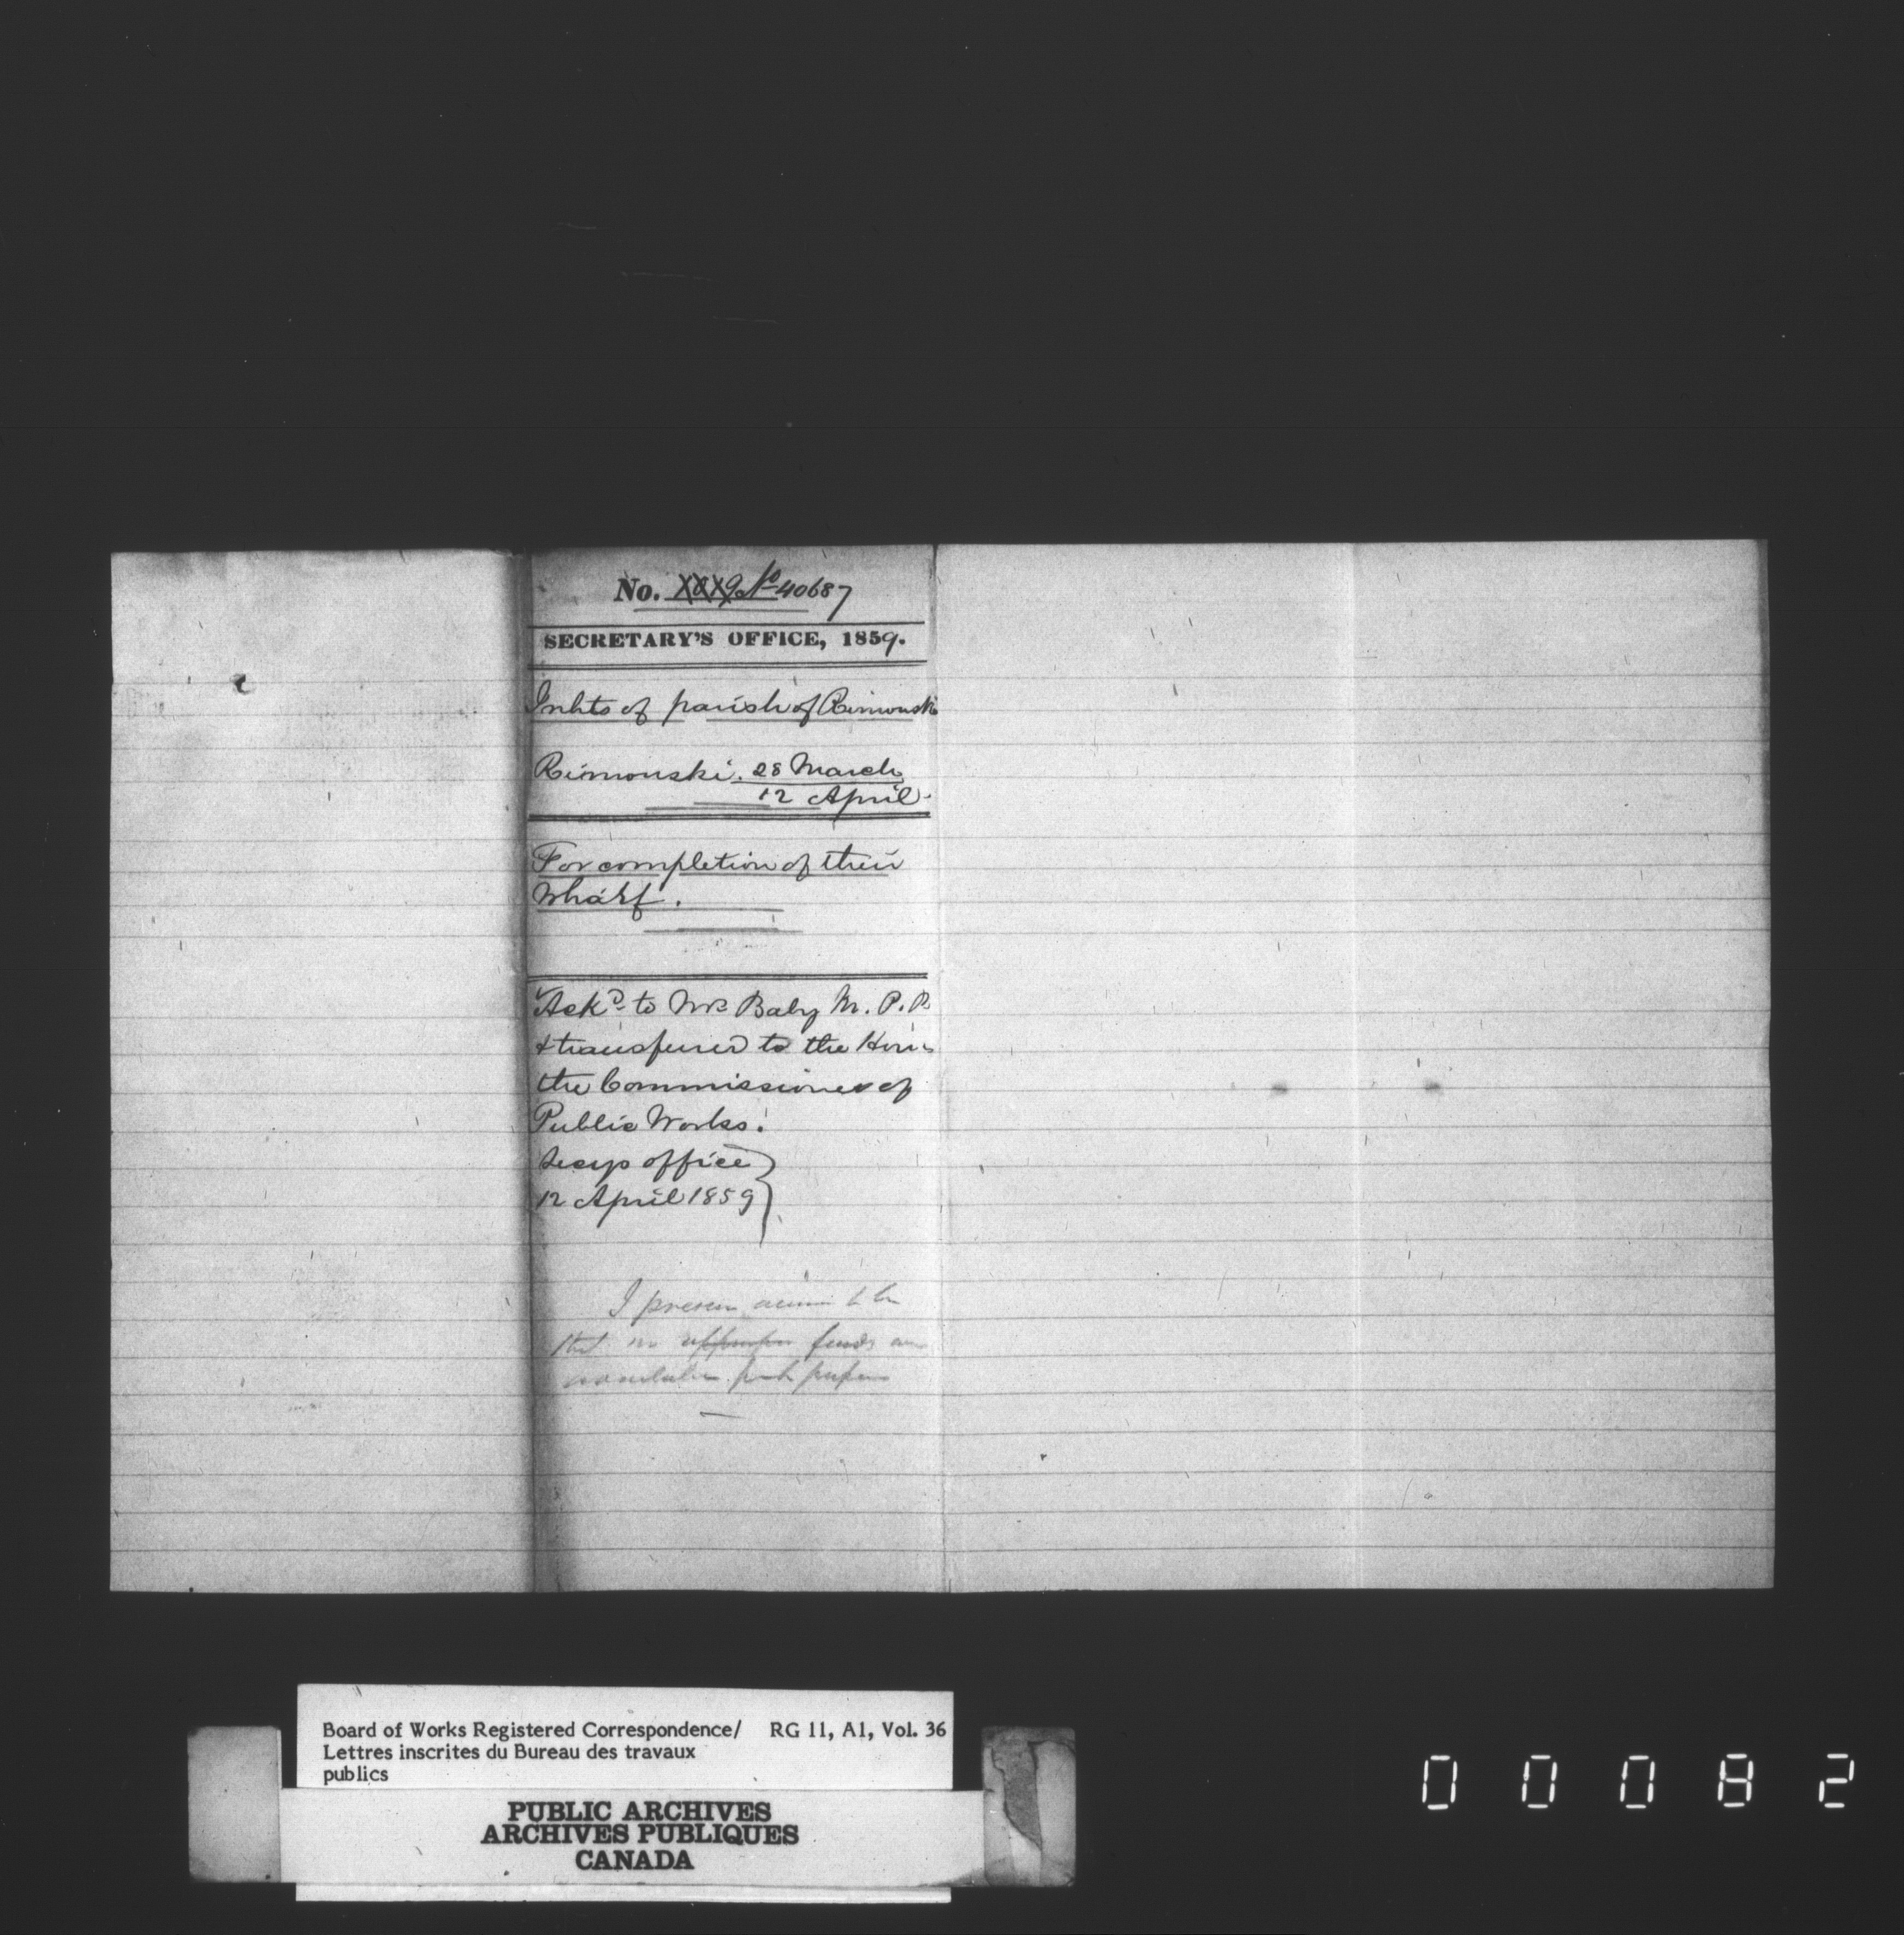 No. No 40687
SECRETARY'S OFFICE, 1859.
Inhts of parish of Rimouski
Rimouski. 28 March
12 April
For completion of their
Wharf.
Ackd to Mr Baby M. P. P.
& transferred to the Hon
the Commissioner of
Public Works.
Secys office
12 April 1859
I
that no funds are
Board of Works Registered Correspondence/ RG 11, A1, Vol. 36
Lettres inscrites du Bureau des travaux
publics
PUBLIC ARCHIVES
ARCHIVES PUBLIQUES
CANADA
00082